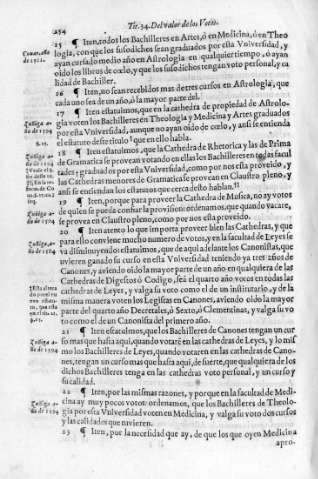 254 Tit. 34. Del valor de los Votos.
15 ¶ Iten, todos los Bachilleres en Artes, ò en Medicina, ò en Theo
logia, con que los susodichos sean graduados por esta Vniuersidad, y
ayan cursado medio año en Astrologia en qualquier tiempo, ò ayan
oido los libros de cœlo, y que los susodichos tengan voto personal, y ca
lidad de Bachiller.
16 ¶ Iten, no sean recebidos mas de tres cursos en Astrologia, que
cada uno sea de un año, ò la mayor parte del.
17 ¶ Iten estatuimos, que en la cathedra de propiedad de Astrolo-
gia voten los Bachilleres en Theologia y Medicina y Artes graduados
por esta Vniuersidad, aunque no ayan oido de cœlo, y ansi se entienda
el estatuto deste titulo que en ello habla.
18 ¶ Iten estatuimos, que la Cathedra de Rhetorica y las de Prima
de Gramatica se prouean votando en ellas los Bachilleres en todas facul
tades, graduados por esta Vniuersidad, como por nos està proueido, y
las Cathedras menores de Gramatica se prouean en Claustro pleno, y
ansi se entiendan los estatutos que cerca desto hablan.
19 ¶ Iten, porque para proueer la Cathedra de Musica, no ay votos
de quien se pueda confiar la prouision: ordenamos, que quando vacare,
se prouea en Claustro pleno, como por nos està proueido.
20 ¶ Iten atento lo que importa proueer bien las Cathedras, y que
para ello conuiene mucho numero de votos, y en la facultad de Leyes se
va disminuyendo: estatuimos, que de aqui adelante los Canonistas, que
uuieren ganado su curso en esta Vniuersidad teniendo ya tres años de
Canones, y auiendo oido la mayor parte de un año en qualquiera de las
Cathedras de Digesto ò Codigo, sea el quarto año votos en todas las
cathedras de Leyes, y valga su voto como el de un institutario, y de la
misma manera voten los Legistas en Canones, auiendo oido la mayor
parte del quarto año Decretales, ò Sexto, ò Clementinas, y valga su vo
to como el de un Canonista del primero año.
21 ¶ Iten estatuimos, que los Bachilleres de Canones tengan un cur
so mas que hasta aqui, quando votarè en las cathedras de Leyes, y lo mis
mo los Bachilleres de Leyes, quando votaren en las cathedras de Cano-
nes, tengan un curso mas que hasta aqui, de suerte, que qualquiera de los
dichos Bachilleres tenga en las cathedras voto personal, y un curso y
su calidad.
22 ¶ Iten, por las mismas razones, y porque en la facultad de Medi-
cina ay muy pocos votos: ordenamos, que los Bachilleres de Theolo-
gia por esta Vniuersidad voten en Medicina, y valga su voto dos cursos
y las calidades que uuieren.
23 ¶ Iten, por la necesidad que ay, de que los que oyen Medicina
apro-